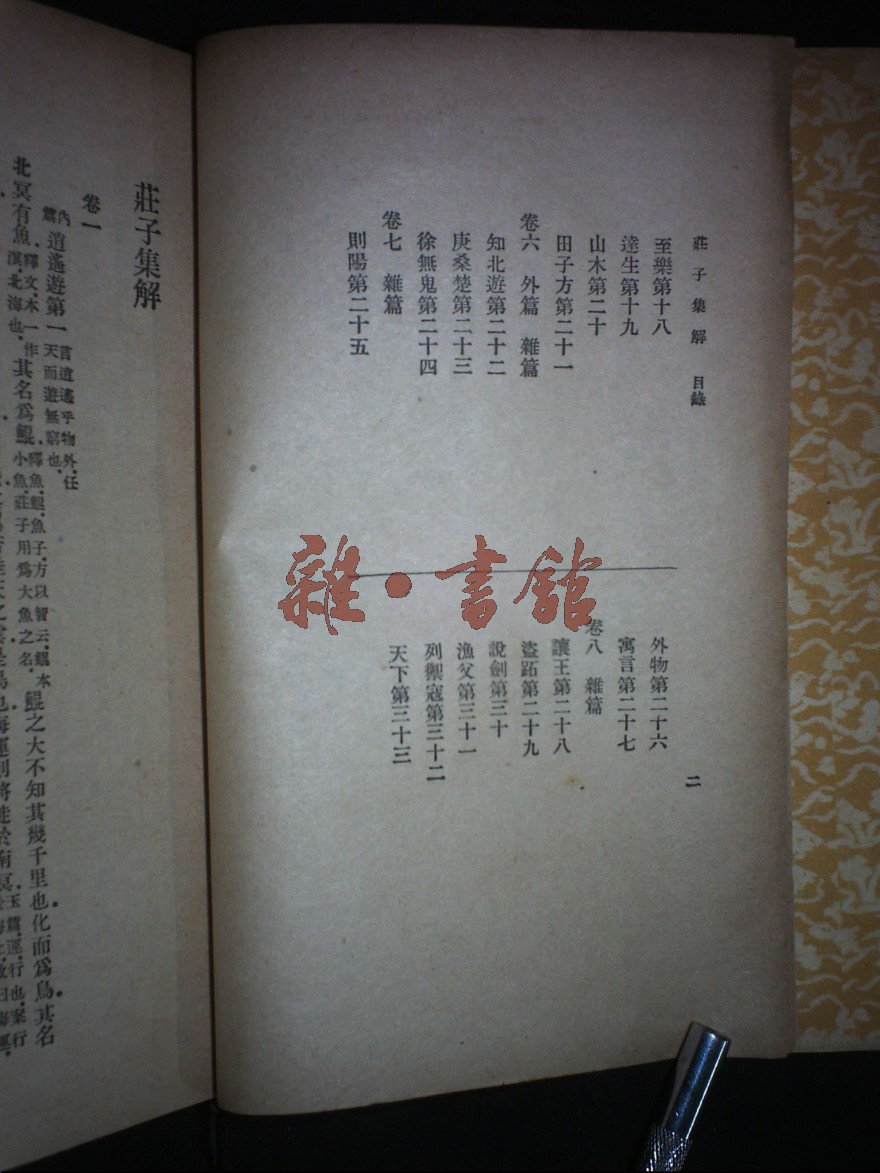 莊子集解 目錄
至樂第十八
達生第十九
山木第二十
田子方第二十一
卷六 外篇 雜篇
知北遊第二十二
庚桑楚第二十三
徐無鬼第二十四
卷七 雜篇
則陽第二十五
外物第二十六
寓言第二十七
卷八 雜篇
讓王第二十八
盜跖第二十九
說劍第三十
漁父第三十一
列禦寇第三十二
天下第三十三
二
雜·書館
莊子集解
卷一
內篇 逍遙遊第一 言逍遙乎物外，任天而遊無窮也。
北冥有魚，釋文，本一作溟，北海也。其名為鯤，釋魚，鯤，魚子，方以智云，鯤本小魚，莊子用為大魚之名。鯤之大不知其幾千里也。化而為鳥，其名
是鳥也海運則將徙於南冥。玉篇，運，行也，案行